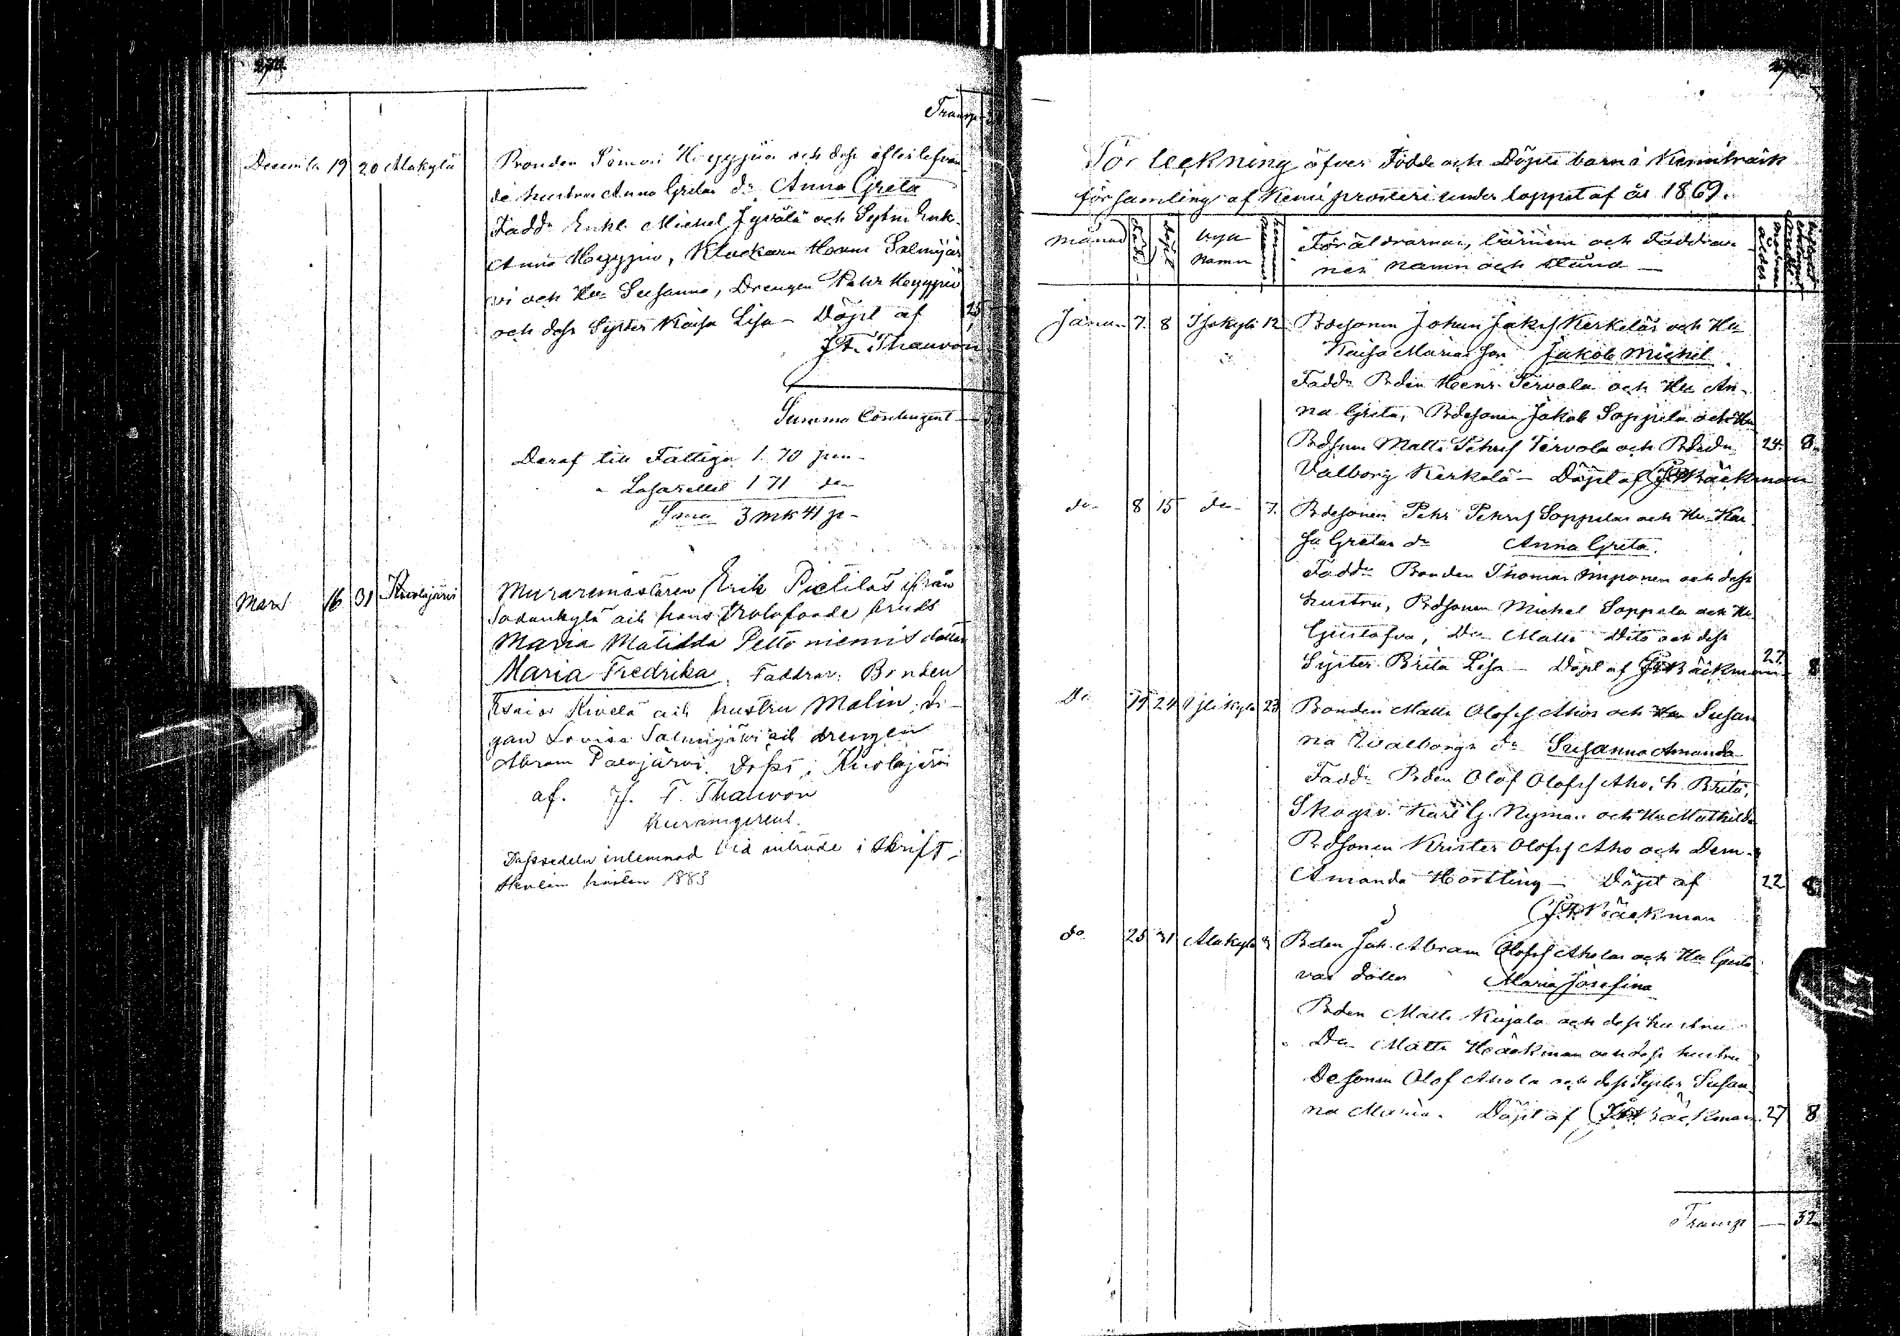 Transp
Decemb. 19 20 Alakylä Bonden Simon Hyyppiäs och dess efterlefvan-
de hustru Anna Gretas dr Anna Greta
Fadd: Enkl. Michel Jyrälä och Syst. Enk.
Anna Hyyppiä, Klockarn Herm Salmijär-
vi och Hu Susanna, Drengen Pehr Hyyppiä
och dess Syster Kaisa Lisa — Döpt af 25
F. Thauvon
Summa Contingent
Deraf till Fattiga 1. 70 pen-
" Lasarettet 1 71 do
Sma 3 mk 41 p-
Mars 16 31 Kuolajärvi Muraremästaren Erik Pietiläs ifrån
Sodankylä och hans trolofvade bruds
Maria Matilda Pettoniemis dotter
Maria Fredrika. Faddrar: Bonden
Esaias Kivelä och hustru Malin, Pi-
gan Lovisa Salmijärvi och drengen
Abram Palojärvi. Döpt i Kuolajärvi
af. J. F. Thauvon
Dopssedeln inlemnad vid inträde i Skrift-
skolan hösten 1883
Förteckning öfver Födde och Döpte barn i Kemiträsk
församling af Kemi prosteri under loppet af år 1869.
Månad född döpt Byn Namn Föräldrarnes, barnens och Faddrar-
nes namn och stånd —
Januari 7. 8 Isokylä 12 Bdesonen Johan Jakss Kerkeläs och Hu
Kaisa Marias son Jakob Michel
Fadd: Bden Henr. Tervola och Hu An-
na Greta, Bdesonen Jakob Soppela och Hu
Bdsonen Matts Pehrss Tervola och
Valborg Kerkelä — Döpt af Bäckman 24. 8
do 8 15 do 7. Bdesonen Pehr Pehrss Soppelas och Hu Kai-
sa Gretas dr Anna Greta.
Fadd: Bonden Thomas Imponen och dess
hustru, Bdsonen Michel Soppela och Hu
Gustafva, Do Matts Dito och dess
Syster Brita Lisa — Döpt af Bäckman 27. 8
Do 19 24 23 Bonden Matts Olofss Ahos och Hu Susan
na Walborgs dr Susanna Amanda
Fadd: Bden Olof Olofss Aho, h. Brita,
Skogv. Karl G. Nyman och Hu Mathilda
Bdsonen Krister Olofss Aho och Dem.
Amanda Hortling — Döpt af 22 8
Bäckman
do 25 31 Alakylä Bden Joh. Abram Olofss Aholas och Hu Gusta-
vas dotter Maria Josefina
Bden Matts Kujala och dess hustru
Do Matts Häckman och dess hustru
Desonen Olof Ahola och dess Syster Susan
na Maria. Döpt af Bäckman 27 8
Transp — 32